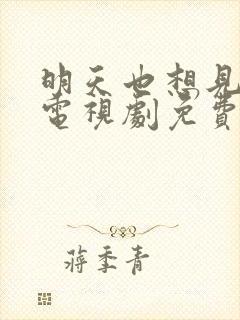 明天也想見
電視劇免費
蔣季青